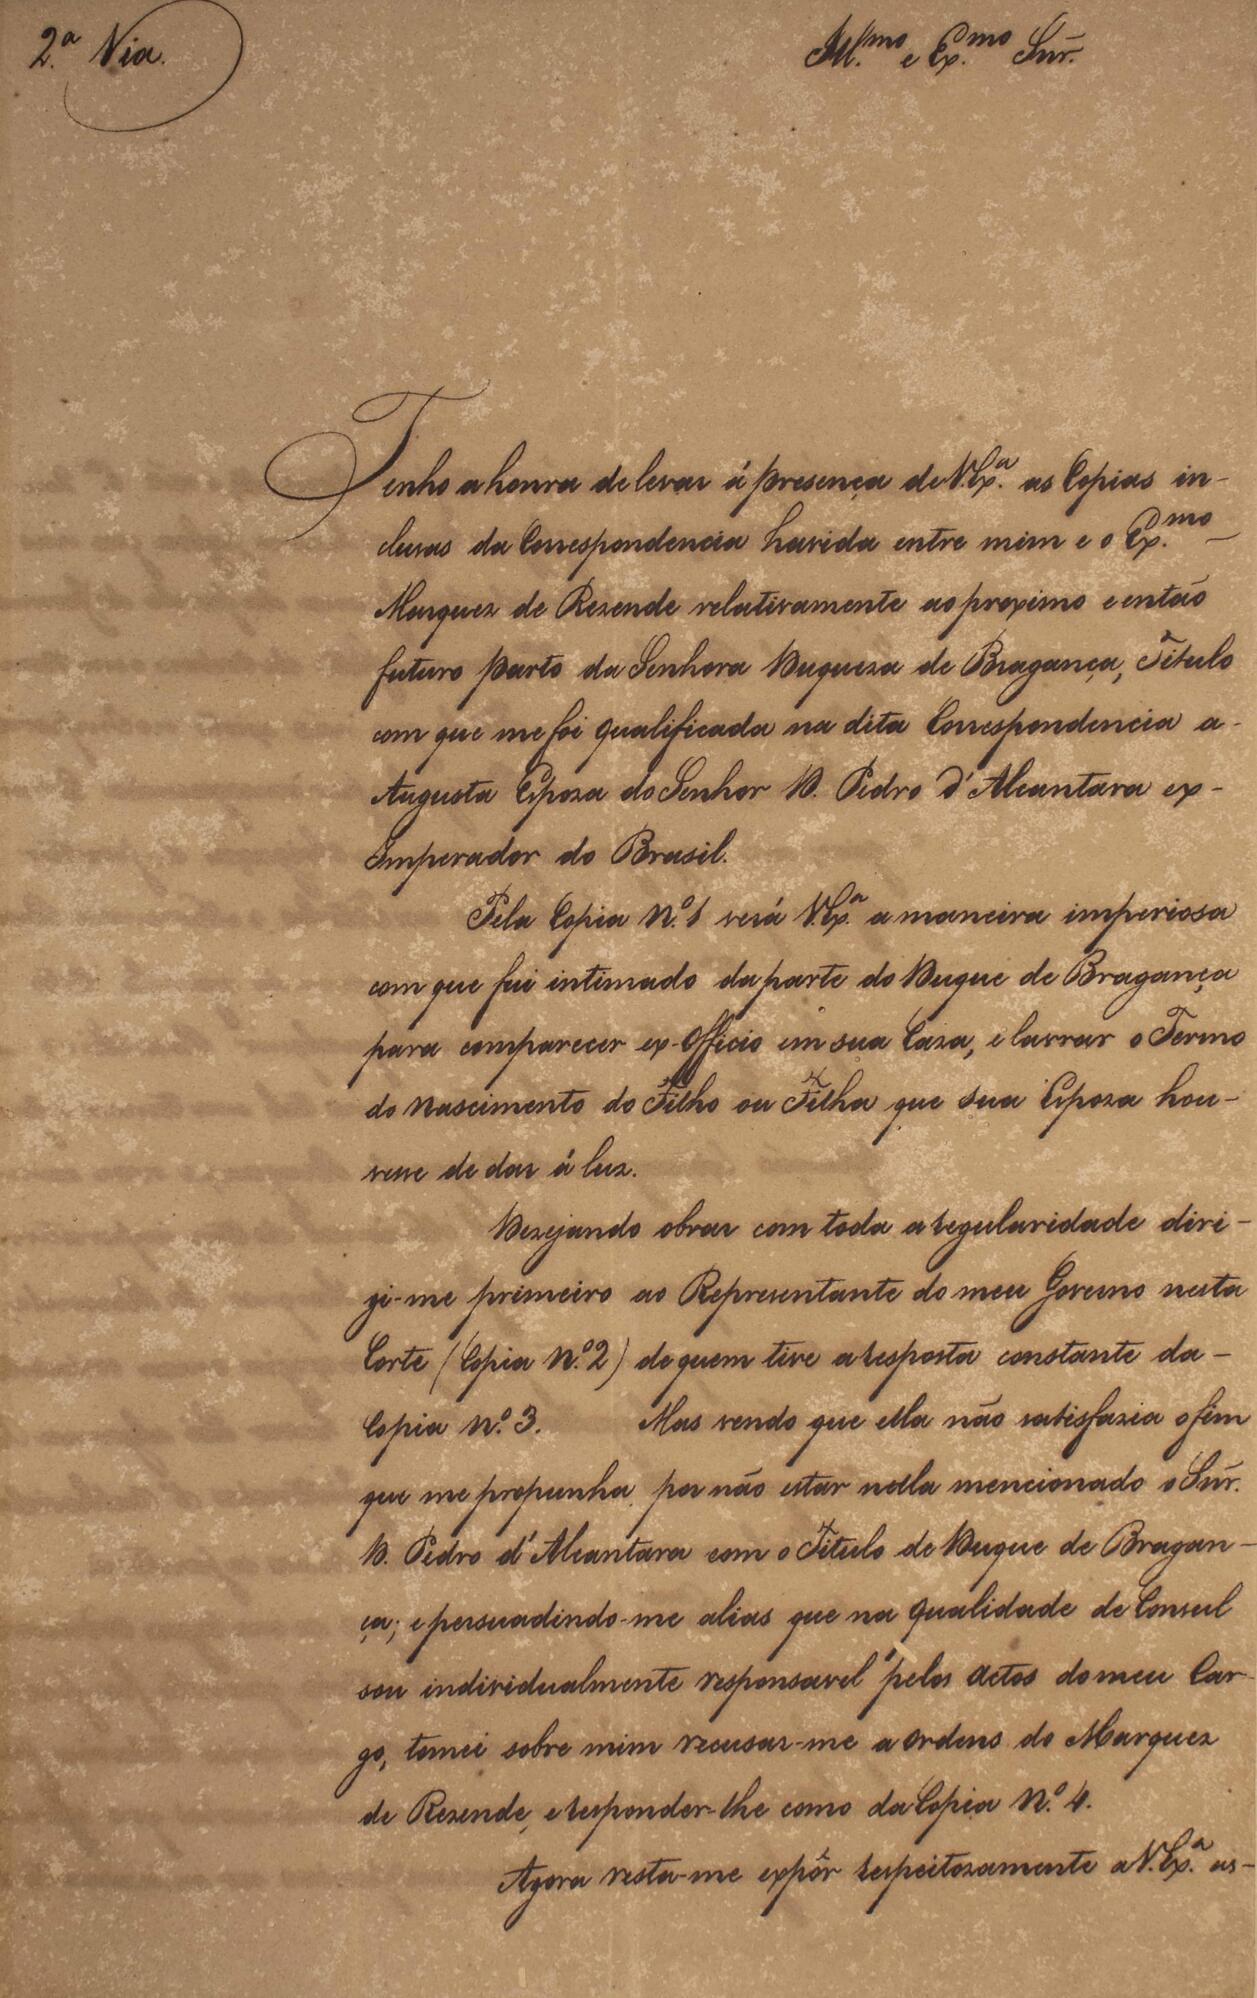 2.ª Via.
Ill.mo e Ex.mo Snr̃.
Tenho a honra de levar á presença de V. Ex.ª as Copias in-
clusas da Correspondencia havida entre mim e o Ex.mo -
Marquez de Rezende relativamente ao proximo e então
futuro parto da Senhora Duqueza de Bragança, Titulo
com que me foi qualificada na dita Correspondencia a -
Augusta Espoza do Senhor D. Pedro d'Alcantara ex -
Imperador do Brasil.
Pela Copia N.º 1 verá V. Ex.ª a maneira imperiosa
com que fui intimado da parte do Duque de Bragança
para comparecer ex-Officio em sua Caza, e lavrar o Termo
do Nascimento do Filho ou Filha que sua Espoza hou-
vesse de dar á luz.
Dezejando obrar com toda a regularidade diri-
gi-me primeiro ao Representante do meu Governo nesta
Corte (Copia N.º 2) de quem tive a resposta constante da -
Copia N.º 3. Mas vendo que ella não satisfazia o fim
que me propunha por não estar nella mencionado o Snr̃.
D. Pedro d'Alcantara com o Titulo de Duque de Bragan-
ça; e persuadindo-me alias que na qualidade de Consul
sou individualmente responsavel pelos actos do meu Car-
go, tomei sobre mim recusar-me a ordens do Marquez
de Rezende, e responder-lhe como da Copia N.º 4.
Agora resta-me expôr respeitozamente a V. Ex.ª as -